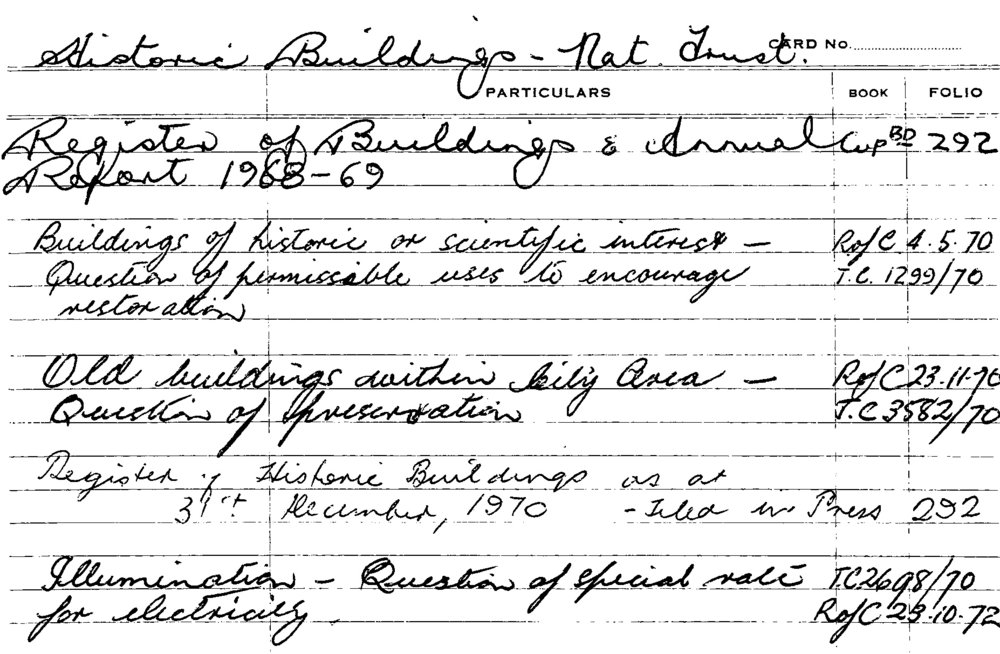 Historic Buildings - Nat. Trust. CARD No.
PARTICULARS BOOK FOLIO
Register of Buildings & Annual Cup BD 292
Report 1968-69
Buildings of historic or scientific interest - R of C 4.5.70
Question of permissable uses to encourage T.C. 1299/70
restoration
Old buildings within City Area - R of C 23.11.70
Question of preservation T.C 3582/70
Register of Historic Buildings as at
31st December, 1970 - Filed in Press 292
Illumination - Question of special rate T.C 2698/70
for electricity. R of C 23.10.72